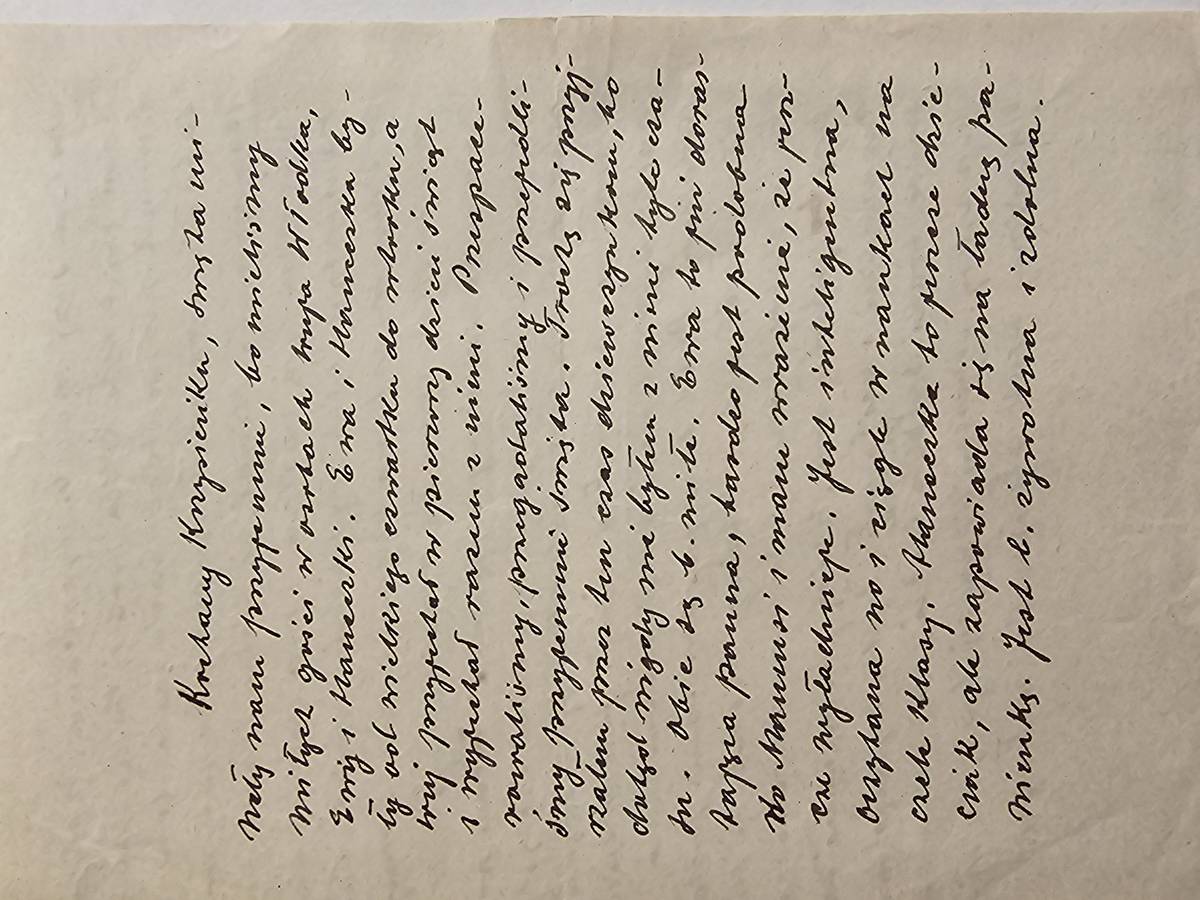 Kochany Krzysieńku, święta mi-
nęły nam przyjemnie, bo mieliśmy
miłych gości w osobach wuja Włodka,
Ewy i Haneczki. Ewa i Haneczka by-
ły od wielkiego czwartku do wtorku, a
wuj przyjechał w pierwszy dzień świąt
i wyjechał razem z nimi. Przespace-
rowaliśmy, przegadaliśmy i przejedli-
śmy przyjemnie święta. Trochę się przyj-
rzałem przez ten czas dziewczynkom, bo
dotąd nigdy nie byłem z nimi tyle cza-
su. Obie są b. miłe. Ewa to już doras-
tająca panna, bardzo jest podobna
do Mamusi i mam wrażenie, że jesz-
cze wyładnieje. Jest inteligentna,
oczytana no i ciągle w mankach na
czele klasy. Haneczka to jeszcze dzie-
ciak, ale zapowiada się na ładną pa-
nienkę. Jest b. żywotna i zdolna.